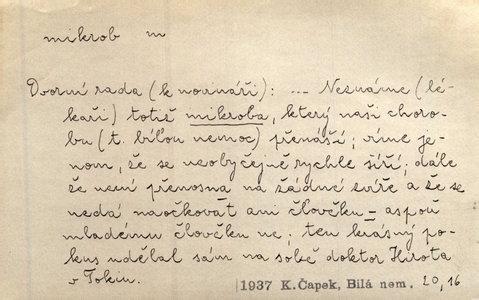 mikrob m
Dvorní rada (k novináři): ... Neznáme (lé-
kaři) totiž mikroba, který naši choro-
bu (t. bílou nemoc) přenáší; víme je-
nom, že se neobyčejně rychle šíří; dále
že není přenosna na žádné zvíře a že se
nedá naočkovat ani člověku – aspoň
mladému člověku ne; ten krásný po-
kus udělal sám na sobě doktor Hirota
v Tokiu.
1937 K.Čapek, Bílá nem. 20,16